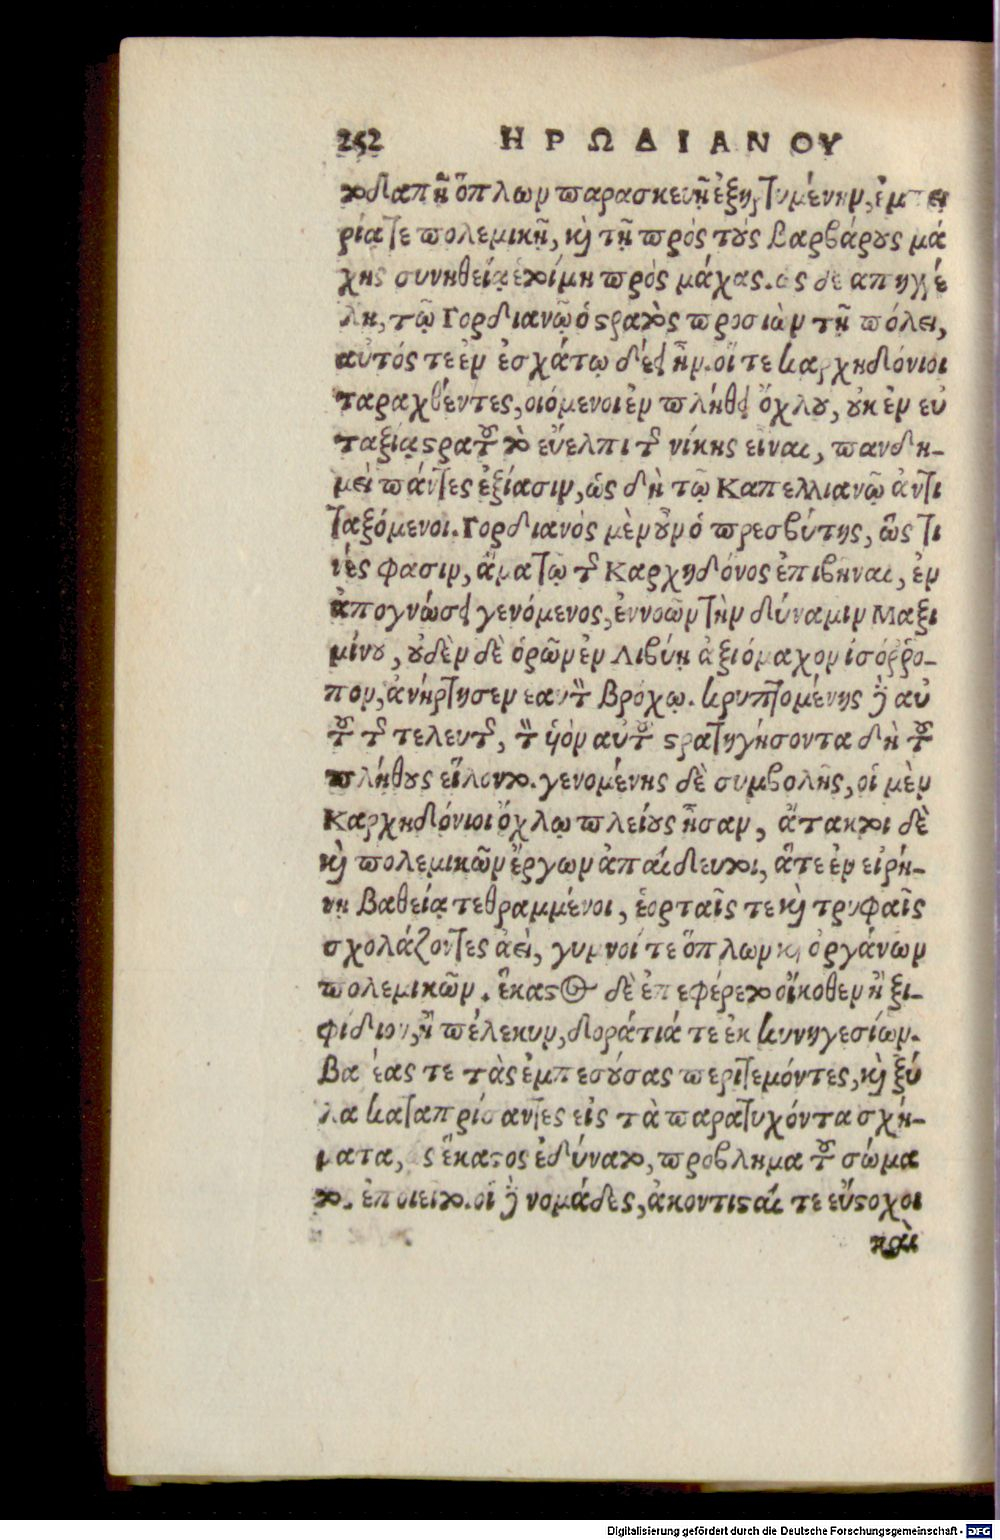 252 ΗΡΩΔΙΑΝΟΥ
τοδαπῆ ὅπλων παρασκευῇ ἐξηρτυμένην, ἐμπει
ρίᾳ τε πολεμικῇ, καὶ τῇ πρὸς τοὺς βαρβάρους μά
χης συνηθείᾳ ἑτοίμη πρὸς μάχας. ὡς δὲ ἀπηγγέ
λη, τῷ Γορδιανῷ ὁ στρατὸς προσιὼν τῇ πόλει,
αὐτός τε ἐν ἐσχάτῳ δέει ἦν. οἵ τε καρχηδόνιοι
ταραχθέντες, οιόμενοι ἐν πλήθει ὄχλου, οὐκ ἐν εὐ
ταξίᾳ στρατοῦ τὸ εὔελπι τῆς νίκης εἶναι, πανδη-
μεὶ πάντες ἐξίασιν, ὡς δὴ τῷ Καπελλιανῷ ἀντι
ταξόμενοι. Γορδιανὸς μὲν οὖν ὁ πρεσβύτης, ὥς τι
νές φασιν, ἅμα τῷ τῆς Καρχηδόνος ἐπιβῆναι, ἐν
ἀπογνώσει γενόμενος, ἐννοῶν τὴν δύναμιν Μαξι
μίνου, οὐδὲν δὲ ὁρῶν ἐν Λιβύῃ ἀξιόμαχον ἰσόῤῥο-
πον, ἀνήρτησεν ἑαυτὸν βρόχῳ. κρυπτομένης δὲ αὐ
τοῦ τῆς τελευτῆς, τὸν υἱὸν αὐτοῦ στρατηγήσοντα δὴ τοῦ
πλήθους εἵλοντο. γενομένης δὲ συμβολῆς, οἱ μὲν
Καρχηδόνιοι ὄχλῳ πλείους ἦσαν, ἄτακτοι δὲ
καὶ πολεμικῶν ἔργων ἀπαίδευτοι, ἅτε ἐν εἰρή-
νῃ βαθείᾳ τεθραμμένοι, ἑορταῖς τε καὶ τρυφαῖς
σχολάζοντες ἀεὶ, γυμνοί τε ὅπλων καὶ ὀργάνων
πολεμικῶν. ἕκαστος δὲ ἐπεφέρετο οἴκοθεν ἢ ξι-
φίδιον, ἢ πέλεκυν, δοράτιά τε ἐκ κυνηγεσίων.
βύρσας τε τὰς ἐμπεσούσας περιτεμόντες, καὶ ξύ
λα καταπρίσαντες εἰς τὰ παρατυχόντα σχή-
ματα, ὡς ἕκατος ἐδύνατο, πρόβλημα τοῦ σώμα
τος ἐποιεῖτο. οἱ δὲ νομάδες, ἀκοντισταί τε εὔστοχοι
καὶ
Digitalisierung gefördert durch die Deutsche Forschungsgemeinschaft - DFG